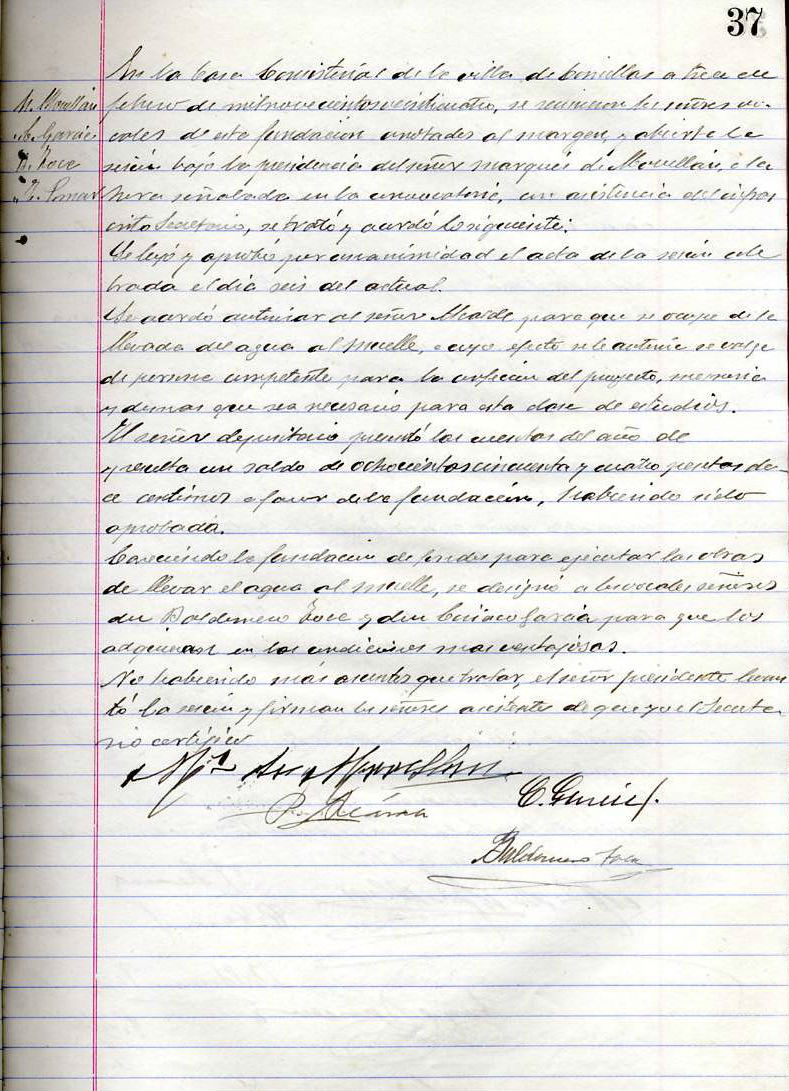 37
En la Casa Consistorial de la villa de Comillas a trece de
M. Movellán
febrero de mil novecientos veinticuatro, se reunieron los señores vo-
C. García
cales de esta fundación anotados al margen, y abierta la
B. Toca
sesión bajo la presidencia del señor marqués de Movellán, a la
hora señalada en la convocatoria, con asistencia del infras
crito Secretario, se trató y acordó lo siguiente:
Se leyó y aprobó por unanimidad el acta de la sesión cele
brada el día seis del actual.
Se acordó autorizar al señor Alcalde para que se ocupe de la
llevada del agua al muelle, a cuyo efecto se le autoriza se valga
de persona competente para la confección del proyecto, memoria
y demas que sea necesario para esta clase de estudios.
El señor depositario presentó las cuentas del año de
y resulta un saldo de ochocientos cincuenta y cuatro pesetas do-
ce centimos a favor de la fundación, habiendo sido
aprobada.
Careciendo la fundación de fondos para ejecutar las obras
de llevar el agua al muelle, se designó a los vocales señores
don Baldomero Toca y don Ciriaco García para que los
adquieran en las condiciones mas ventajosas.
No habiendo más asuntos que tratar, el señor presidente levan
tó la sesión y firman los señores asistentes de que yo el Secreta
rio certifico
El M. de Movellán
C. García
Baldomero Toca